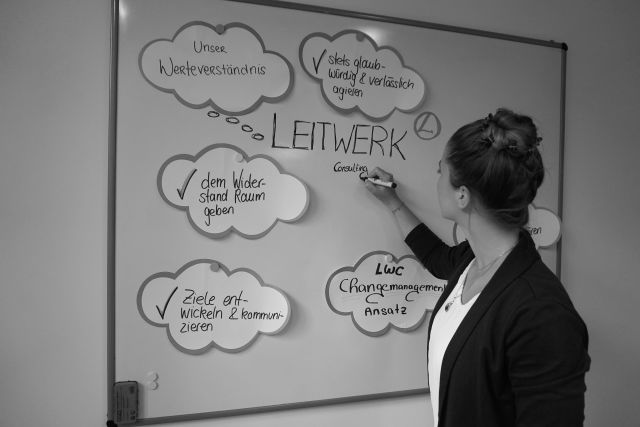 Unser
Werteverständnis
✓ stets glaub-
würdig & verlässlich
agieren
LEITWERK
L
Consulting
✓ dem Wider-
stand Raum
geben
✓ Ziele ent-
wickeln & kommuni-
zieren
LWC
Changemanagement
Ansatz